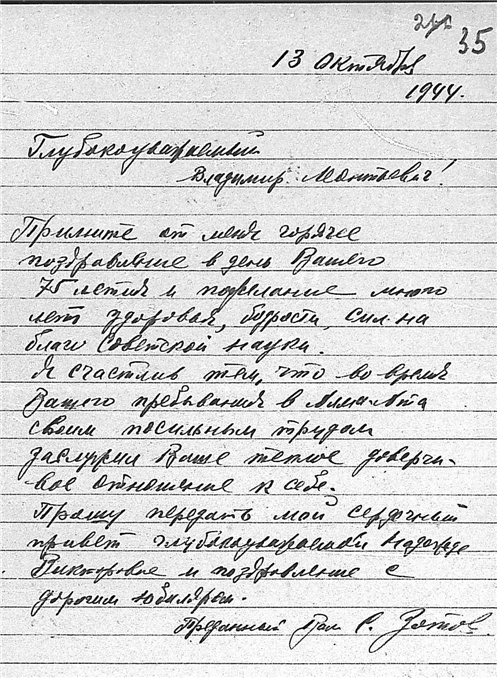 35
13 октября
1944.
Глубокоуважаемый
Владимир Леонтьевич!
Примите от меня горячее
поздравление в день Вашего
75 летия и пожелание много
лет здоровья, бодрости, сил на
благо советской науки.
Я счастлив тем, что во время
Вашего пребывания в Алма-Ата
своим посильным трудом
заслужил Ваше теплое доверчи-
вое отношение к себе.
Прошу передать мой сердечный
привет глубокоуважаемой Надежде
Викторовне и поздравление с
дорогим юбиляром.
Преданный Вам С. Зотов